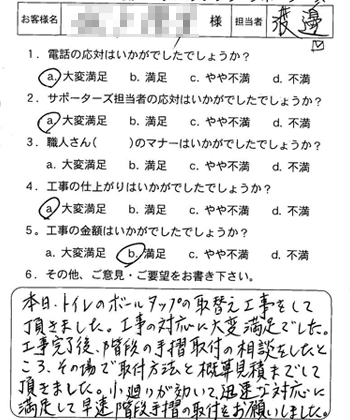 お客様名 様 担当者 渡邉
1．電話の応対はいかがでしたでしょうか？
a. 大変満足 b. 満足 c. やや不満 d. 不満
2．サポーターズ担当者の応対はいかがでしたでしょうか？
a. 大変満足 b. 満足 c. やや不満 d. 不満
3．職人さん( )のマナーはいかがでしたでしょうか？
a. 大変満足 b. 満足 c. やや不満 d. 不満
4．工事の仕上がりはいかがでしたでしょうか？
a. 大変満足 b. 満足 c. やや不満 d. 不満
5．工事の金額はいかがでしたでしょうか？
a. 大変満足 b. 満足 c. やや不満 d. 不満
6．その他、ご意見・ご要望をお書き下さい。
本日、トイレのボールタップの取替え工事をして
頂きました。工事の対応に大変満足でした。
工事完了後、階段の手摺取付の相談をしたと
ころ、その場で取付方法と概算見積までして
頂きました。小廻りが効いて、迅速な対応に
満足して早速階段手摺の取付をお願いしました。